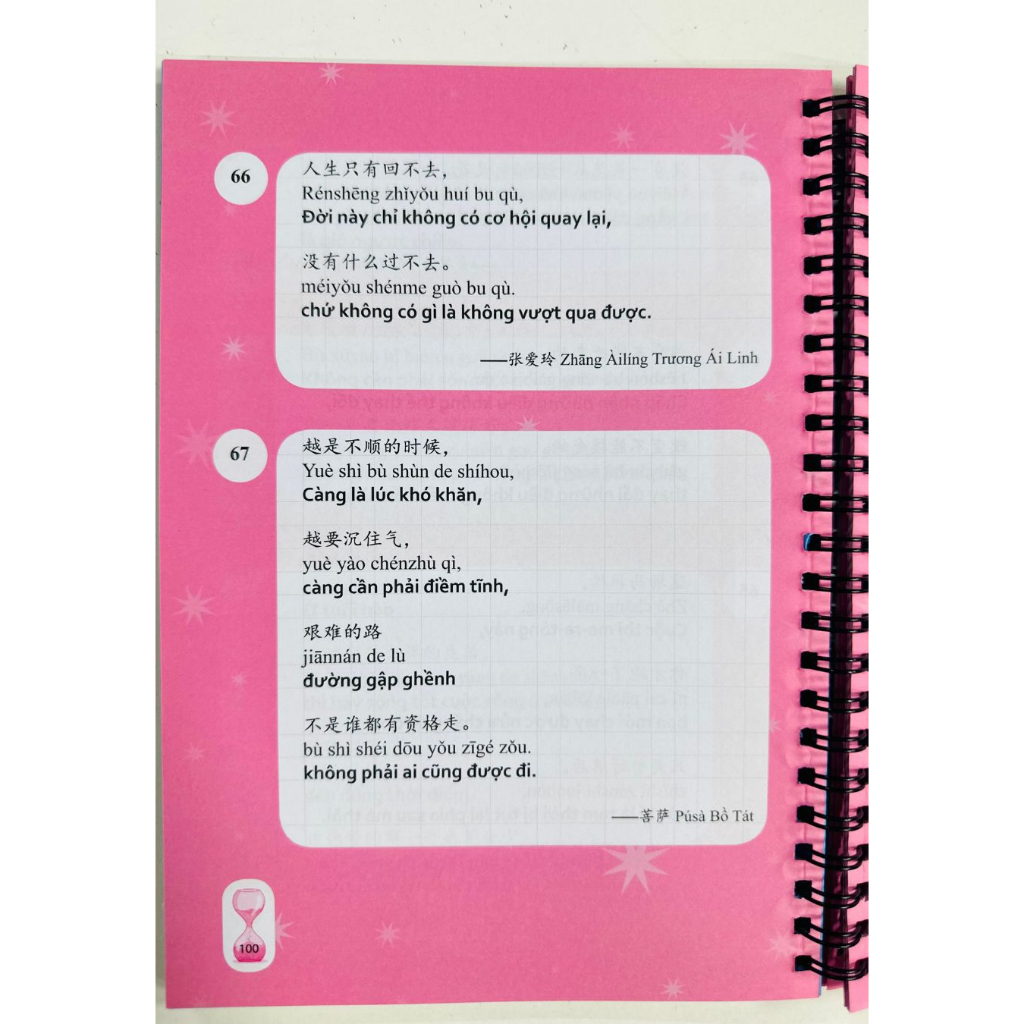 66
人生只有回不去，
Rénshēng zhǐyǒu huí bu qù,
Đời này chỉ không có cơ hội quay lại,
没有什么过不去。
méiyǒu shénme guò bu qù.
chứ không có gì là không vượt qua được.
——张爱玲 Zhāng Àilíng Trương Ái Linh
67
越是不顺的时候，
Yuè shì bù shùn de shíhou,
Càng là lúc khó khăn,
越要沉住气，
yuè yào chénzhù qì,
càng cần phải điềm tĩnh,
艰难的路
jiānnán de lù
đường gập ghềnh
不是谁都有资格走。
bù shì shéi dōu yǒu zīgé zǒu.
không phải ai cũng được đi.
——菩萨 Púsà Bồ Tát
100